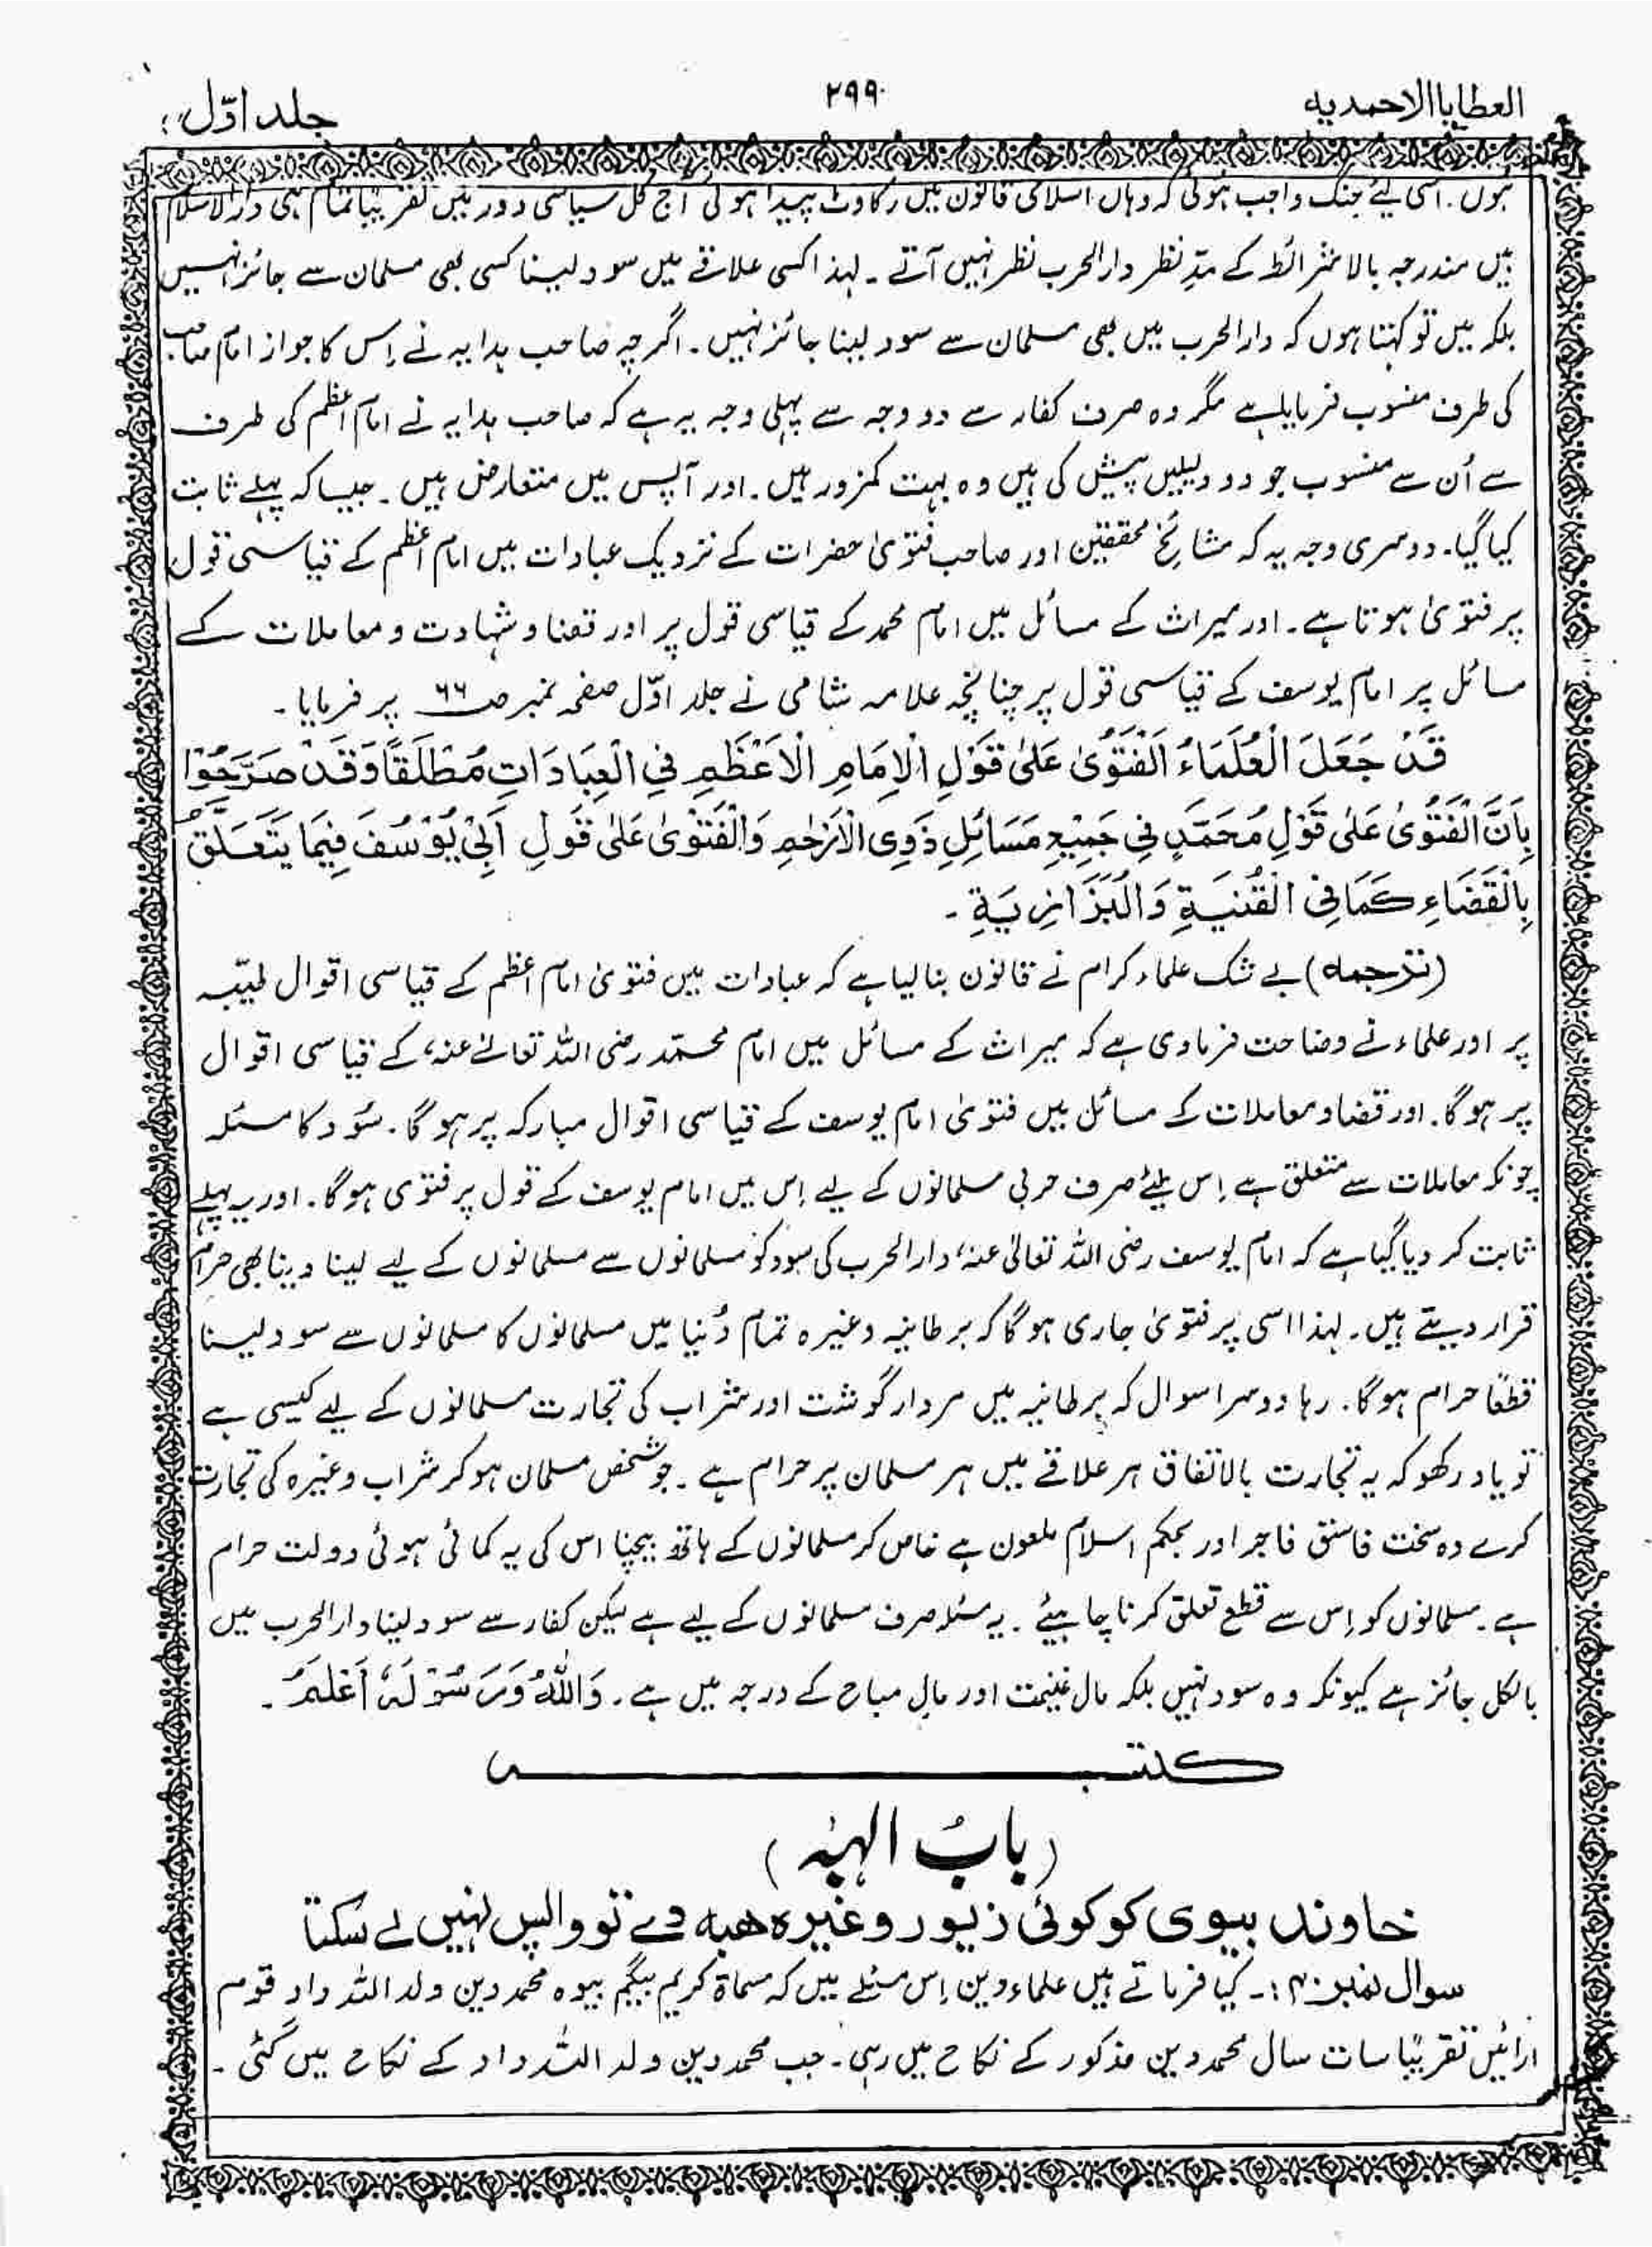 العطایا الاحمدیہ
۲۹۹
جلد اوّل
ہوں۔ اسی لیئے جنگ واجب ہوئی کہ وہاں اسلامی قانون میں رکاوٹ پیدا ہوئی آج کل سیاسی دور میں تقریبًا تمام ہی دارالاسلام
ہیں مندرجہ بالا شرائط کے مدِّ نظر دارالحرب نظر نہیں آتے۔ لہذا کسی علاقے میں سود لینا کسی بھی مسلمان سے جائز نہیں
بلکہ میں تو کہتا ہوں کہ دارالحرب میں بھی مسلمان سے سود لینا جائز نہیں۔ اگرچہ صاحب ہدایہ نے اِس کا جواز امام صاحب
کی طرف منسوب فرمایا ہے مگر وہ صرف کفار سے دو وجہ سے پہلی وجہ یہ ہے کہ صاحب ہدایہ نے امام اعظم کی طرف
سے اُن سے منسوب جو دو دلیلیں پیش کی ہیں وہ بہت کمزور ہیں۔ اور آپس میں متعارض ہیں۔ جیسا کہ پہلے ثابت
کیا گیا۔ دوسری وجہ یہ کہ مشائخ محققین اور صاحب فتویٰ حضرات کے نزدیک عبادات میں امام اعظم کے قیاسی قول
پر فتویٰ ہوتا ہے۔ اور میراث کے مسائل میں امام محمد کے قیاسی قول پر اور قضا و شہادت و معاملات کے
مسائل پر امام یوسف کے قیاسی قول پر چنانچہ علامہ شامی نے جلد اوّل صفحہ نمبر ص۶۶ پر فرمایا۔
قَدْ جَعَلَ الْعُلَمَاءُ الْفَتْوٰی عَلٰی قَوْلِ الْاِمَامِ الْاَعْظَمِ فِی الْعِبَادَاتِ مُطْلَقًا وَقَدْ صَرَّحُوْا
بِاَنَّ الْفَتْوٰی عَلٰی قَوْلِ مُحَمَّدٍ فِی جَمِیْعِ مَسَائِلِ ذَوِی الْاَرْحَامِ وَالْفَتْوٰی عَلٰی قَوْلِ اَبِیْ یُوْسُفَ فِیْمَا یَتَعَلَّقُ
بِالْقَضَاءِ کَمَا فِی الْقُنْیَةِ وَالْبَزَّازِیَةِ۔
(ترجمہ) بے شک علماء کرام نے قانون بنا لیا ہے کہ عبادات میں فتویٰ امام اعظم کے قیاسی اقوال طیّبہ
پر اور علماء نے وضاحت فرما دی ہے کہ میراث کے مسائل میں امام محمّد رضی اللہ تعالےٰ عنہ، کے قیاسی اقوال
پر ہو گا۔ اور قضاء و معاملات کے مسائل میں فتویٰ امام یوسف کے قیاسی اقوال مبارکہ پر ہو گا۔ سُود کا مسئلہ
چونکہ معاملات سے متعلق ہے اِس لیئے صرف حربی مسلمانوں کے لیے اِس میں امام یوسف کے قول پر فتویٰ ہوگا۔ اور یہ پہلے
ثابت کر دیا گیا ہے کہ امام یوسف رضی اللہ تعالیٰ عنہ، دارالحرب کی سود کو مسلمانوں سے مسلمانوں کے لیے لینا دینا بھی حرام
قرار دیتے ہیں۔ لہذا اسی پر فتویٰ جاری ہو گا کہ برطانیہ وغیرہ تمام دُنیا میں مسلمانوں کا مسلمانوں سے سود لینا
قطعًا حرام ہو گا۔ رہا دوسرا سوال کہ برطانیہ میں مردار گوشت اور شراب کی تجارت مسلمانوں کے لیے کیسی ہے
تو یاد رکھو کہ یہ تجارت بالاتفاق ہر علاقے میں ہر مسلمان پر حرام ہے۔ جو شخص مسلمان ہو کر شراب وغیرہ کی تجارت
کرے وہ سخت فاسق فاجر اور بحکم اسلام ملعون ہے خاص کر مسلمانوں کے ہاتھ بیچنا اس کی یہ کمائی ہوئی دولت حرام
ہے۔ مسلمانوں کو اِس سے قطع تعلق کرنا چاہیئے۔ یہ مسئلہ صرف مسلمانوں کے لیے ہے لیکن کفار سے سود لینا دارالحرب میں
بالکل جائز ہے کیونکہ وہ سود نہیں بلکہ مال غنیمت اور مالِ مباح کے درجہ میں ہے۔ وَاللّٰهُ وَرَسُوْلَهٗ اَعْلَمُ۔
کتبہ
(بابُ الہبہ)
خاوند بیوی کو کوئی زیور وغیرہ ھبہ دے تو واپس نہیں لے سکتا
سوال نمبر ۴۰:۔ کیا فرماتے ہیں علماء دین اِس مسئلے میں کہ مسماۃ کریم بیگم بیوہ محمد دین ولد اللہ داد قوم
ارائیں تقریبًا سات سال محمد دین مذکور کے نکاح میں رہی۔ جب محمد دین ولد اللہ داد کے نکاح میں گئی۔